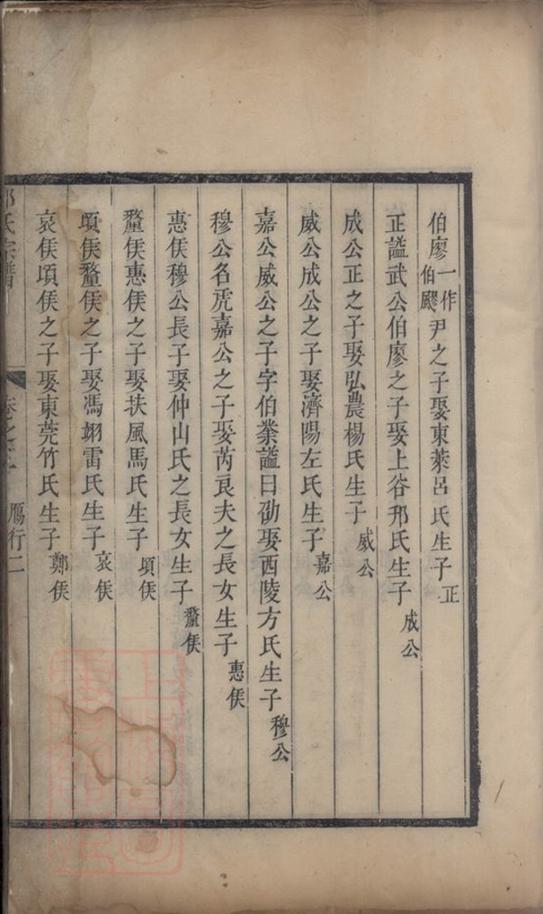 伯廖一作伯廫尹之子娶東萊呂氏生子正
正謚武公伯廖之子娶上谷邢氏生子成公
成公正之子娶弘農楊氏生子威公
威公成公之子娶濟陽左氏生子嘉公
嘉公威公之子字伯業謚曰劭娶西陵方氏生子穆公
穆公名虎嘉公之子娶芮良夫之長女生子惠侯
惠侯穆公長子娶仲山氏之長女生子釐侯
釐侯惠侯之子娶扶風馬氏生子頃侯
頃侯釐侯之子娶馮翊雷氏生子哀侯
哀侯頃侯之子娶東莞竹氏生子鄭侯
氏宗譜 卷之 鴈行二